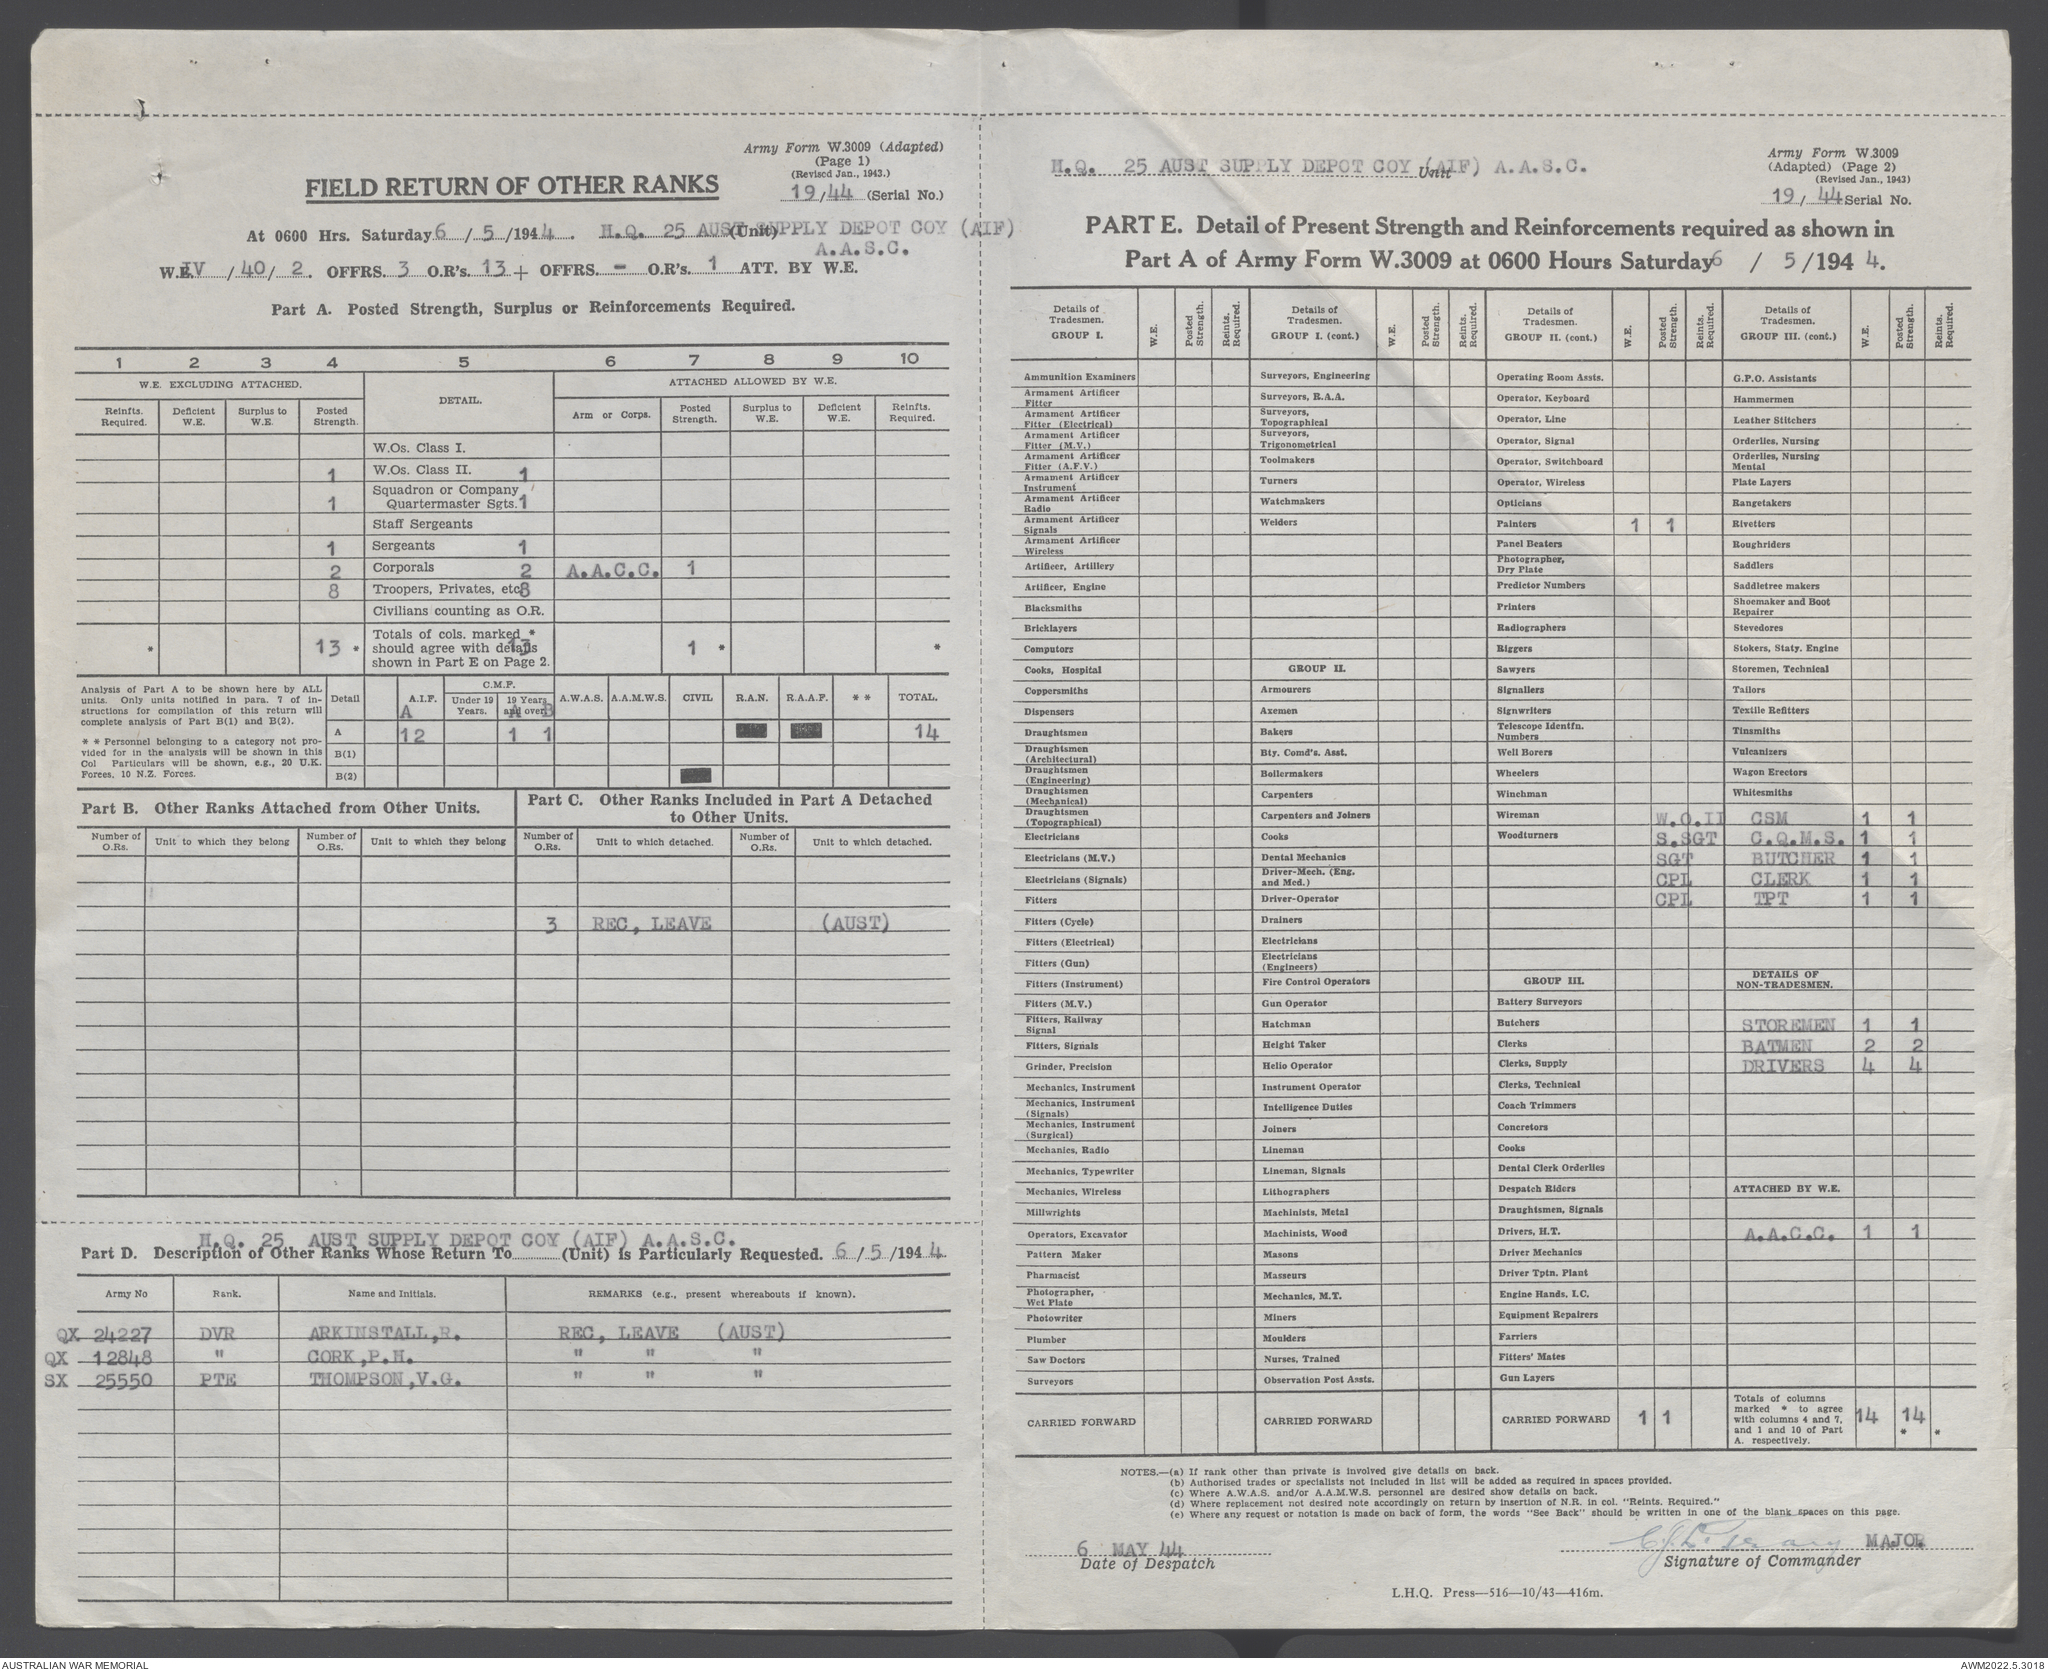 Army Form W.3009 (Adapted)
(Page 1)
(Revised Jan., 1943.)
19/44 (Serial No.)
FIELD RETURN OF OTHER RANKS
At 0600 Hrs. Saturday 6/5/1944. H.Q. 25 AUST SUPPLY DEPOT COY (AIF) (Unit)
A.A.S.C.
W.E. IV/40/2. OFFRS. 3 O.R's. 13 + OFFRS. - O.R's. 1 ATT. BY W.E.
Part A. Posted Strength, Surplus or Reinforcements Required.
1 2 3 4 5 6 7 8 9 10
W.E. EXCLUDING ATTACHED. DETAIL. ATTACHED ALLOWED BY W.E.
Reinfts. Required. Deficient W.E. Surplus to W.E. Posted Strength. Arm or Corps. Posted Strength. Surplus to W.E. Deficient W.E. Reinfts. Required.
W.Os. Class I.
1 W.Os. Class II. 1
1 Squadron or Company Quartermaster Sgts. 1
Staff Sergeants
1 Sergeants 1
2 Corporals 2 A.A.C.C. 1
8 Troopers, Privates, etc. 8
Civilians counting as O.R.
* 13 * Totals of cols. marked * should agree with details shown in Part E on Page 2. 13 1 * *
Analysis of Part A to be shown here by ALL units. Only units notified in para. 7 of instructions for compilation of this return will complete analysis of Part B(1) and B(2).
* * Personnel belonging to a category not provided for in the analysis will be shown in this Col Particulars will be shown, e.g., 20 U.K. Forces, 10 N.Z. Forces.
Detail A.I.F. C.M.F. Under 19 Years. 19 Years and over. A.W.A.S. A.A.M.W.S. CIVIL R.A.N. R.A.A.F. * * TOTAL.
A A B
A 12 1 1 14
B(1)
B(2)
Part B. Other Ranks Attached from Other Units.
Part C. Other Ranks Included in Part A Detached to Other Units.
Number of O.Rs. Unit to which they belong Number of O.Rs. Unit to which they belong Number of O.Rs. Unit to which detached. Number of O.Rs. Unit to which detached.
3 REC, LEAVE (AUST)
H.Q. 25 AUST SUPPLY DEPOT COY (AIF) A.A.S.C.
Part D. Description of Other Ranks Whose Return To (Unit) is Particularly Requested. 6/5/1944.
Army No Rank. Name and Initials. REMARKS (e.g., present whereabouts if known).
QX 24227 DVR ARKINSTALL,R. REC, LEAVE (AUST)
QX 12848 " CORK,P.H. " " "
SX 25550 PTE THOMPSON,V.G. " " "
H.Q. 25 AUST SUPPLY DEPOT COY (AIF) A.A.S.C. Unit
Army Form W.3009
(Adapted) (Page 2)
(Revised Jan., 1943)
19/44 Serial No.
PART E. Detail of Present Strength and Reinforcements required as shown in
Part A of Army Form W.3009 at 0600 Hours Saturday 6/5/1944.
Details of Tradesmen. GROUP I. W.E. Posted Strength. Reints. Required.
Ammunition Examiners
Armament Artificer Fitter
Armament Artificer Fitter (Electrical)
Armament Artificer Fitter (M.V.)
Armament Artificer Fitter (A.F.V.)
Armament Artificer Instrument
Armament Artificer Radio
Armament Artificer Signals
Armament Artificer Wireless
Artificer, Artillery
Artificer, Engine
Blacksmiths
Bricklayers
Computors
Cooks, Hospital
Coppersmiths
Dispensers
Draughtsmen
Draughtsmen (Architectural)
Draughtsmen (Engineering)
Draughtsmen (Mechanical)
Draughtsmen (Topographical)
Electricians
Electricians (M.V.)
Electricians (Signals)
Fitters
Fitters (Cycle)
Fitters (Electrical)
Fitters (Gun)
Fitters (Instrument)
Fitters (M.V.)
Fitters, Railway Signal
Fitters, Signals
Grinder, Precision
Mechanics, Instrument
Mechanics, Instrument (Signals)
Mechanics, Instrument (Surgical)
Mechanics, Radio
Mechanics, Typewriter
Mechanics, Wireless
Millwrights
Operators, Excavator
Pattern Maker
Pharmacist
Photographer, Wet Plate
Photowriter
Plumber
Saw Doctors
Surveyors
CARRIED FORWARD
Details of Tradesmen. GROUP I. (cont.) W.E. Posted Strength. Reints. Required.
Surveyors, Engineering
Surveyors, R.A.A.
Surveyors, Topographical
Surveyors, Trigonometrical
Toolmakers
Turners
Watchmakers
Welders
GROUP II.
Armourers
Axemen
Bakers
Bty. Comd's. Asst.
Boilermakers
Carpenters
Carpenters and Joiners
Cooks
Dental Mechanics
Driver-Mech. (Eng. and Med.)
Driver-Operator
Drainers
Electricians
Electricians (Engineers)
Fire Control Operators
Gun Operator
Hatchman
Height Taker
Helio Operator
Instrument Operator
Intelligence Duties
Joiners
Lineman
Lineman, Signals
Lithographers
Machinists, Metal
Machinists, Wood
Masons
Masseurs
Mechanics, M.T.
Miners
Moulders
Nurses, Trained
Observation Post Assts.
CARRIED FORWARD
Details of Tradesmen. GROUP II. (cont.) W.E. Posted Strength. Reints. Required.
Operating Room Assts.
Operator, Keyboard
Operator, Line
Operator, Signal
Operator, Switchboard
Operator, Wireless
Opticians
Painters 1 1
Panel Beaters
Photographer, Dry Plate
Predictor Numbers
Printers
Radiographers
Riggers
Sawyers
Signallers
Signwriters
Telescope Identfn. Numbers
Well Borers
Wheelers
Winchman
Wireman
Woodturners
GROUP III.
Battery Surveyors
Butchers
Clerks
Clerks, Supply
Clerks, Technical
Coach Trimmers
Concretors
Cooks
Dental Clerk Orderlies
Despatch Riders
Draughtsmen, Signals
Drivers, H.T.
Driver Mechanics
Driver Tptn. Plant
Engine Hands, I.C.
Equipment Repairers
Farriers
Fitters' Mates
Gun Layers
CARRIED FORWARD 1 1
Details of Tradesmen. GROUP III. (cont.) W.E. Posted Strength. Reints. Required.
G.P.O. Assistants
Hammermen
Leather Stitchers
Orderlies, Nursing
Orderlies, Nursing Mental
Plate Layers
Rangetakers
Rivetters
Roughriders
Saddlers
Saddletree makers
Shoemaker and Boot Repairer
Stevedores
Stokers, Staty. Engine
Storemen, Technical
Tailors
Textile Refitters
Tinsmiths
Vulcanizers
Wagon Erectors
Whitesmiths
W.O.II CSM 1 1
S.SGT C.Q.M.S. 1 1
SGT BUTCHER 1 1
CPL CLERK 1 1
CPL TPT 1 1
DETAILS OF NON-TRADESMEN.
STOREMEN 1 1
BATMEN 2 2
DRIVERS 4 4
ATTACHED BY W.E.
A.A.C.C. 1 1
Totals of columns marked * to agree with columns 4 and 7, and 1 and 10 of Part A. respectively. 14 14 * *
NOTES.—(a) If rank other than private is involved give details on back.
(b) Authorised trades or specialists not included in list will be added as required in spaces provided.
(c) Where A.W.A.S. and/or A.A.M.W.S. personnel are desired show details on back.
(d) Where replacement not desired note accordingly on return by insertion of N.R. in col. "Reints. Required."
(e) Where any request or notation is made on back of form, the words "See Back" should be written in one of the blank spaces on this page.
6 MAY 44
Date of Despatch
MAJOR
Signature of Commander
L.H.Q. Press—516—10/43—416m.
AUSTRALIAN WAR MEMORIAL
AWM2022.5.3018